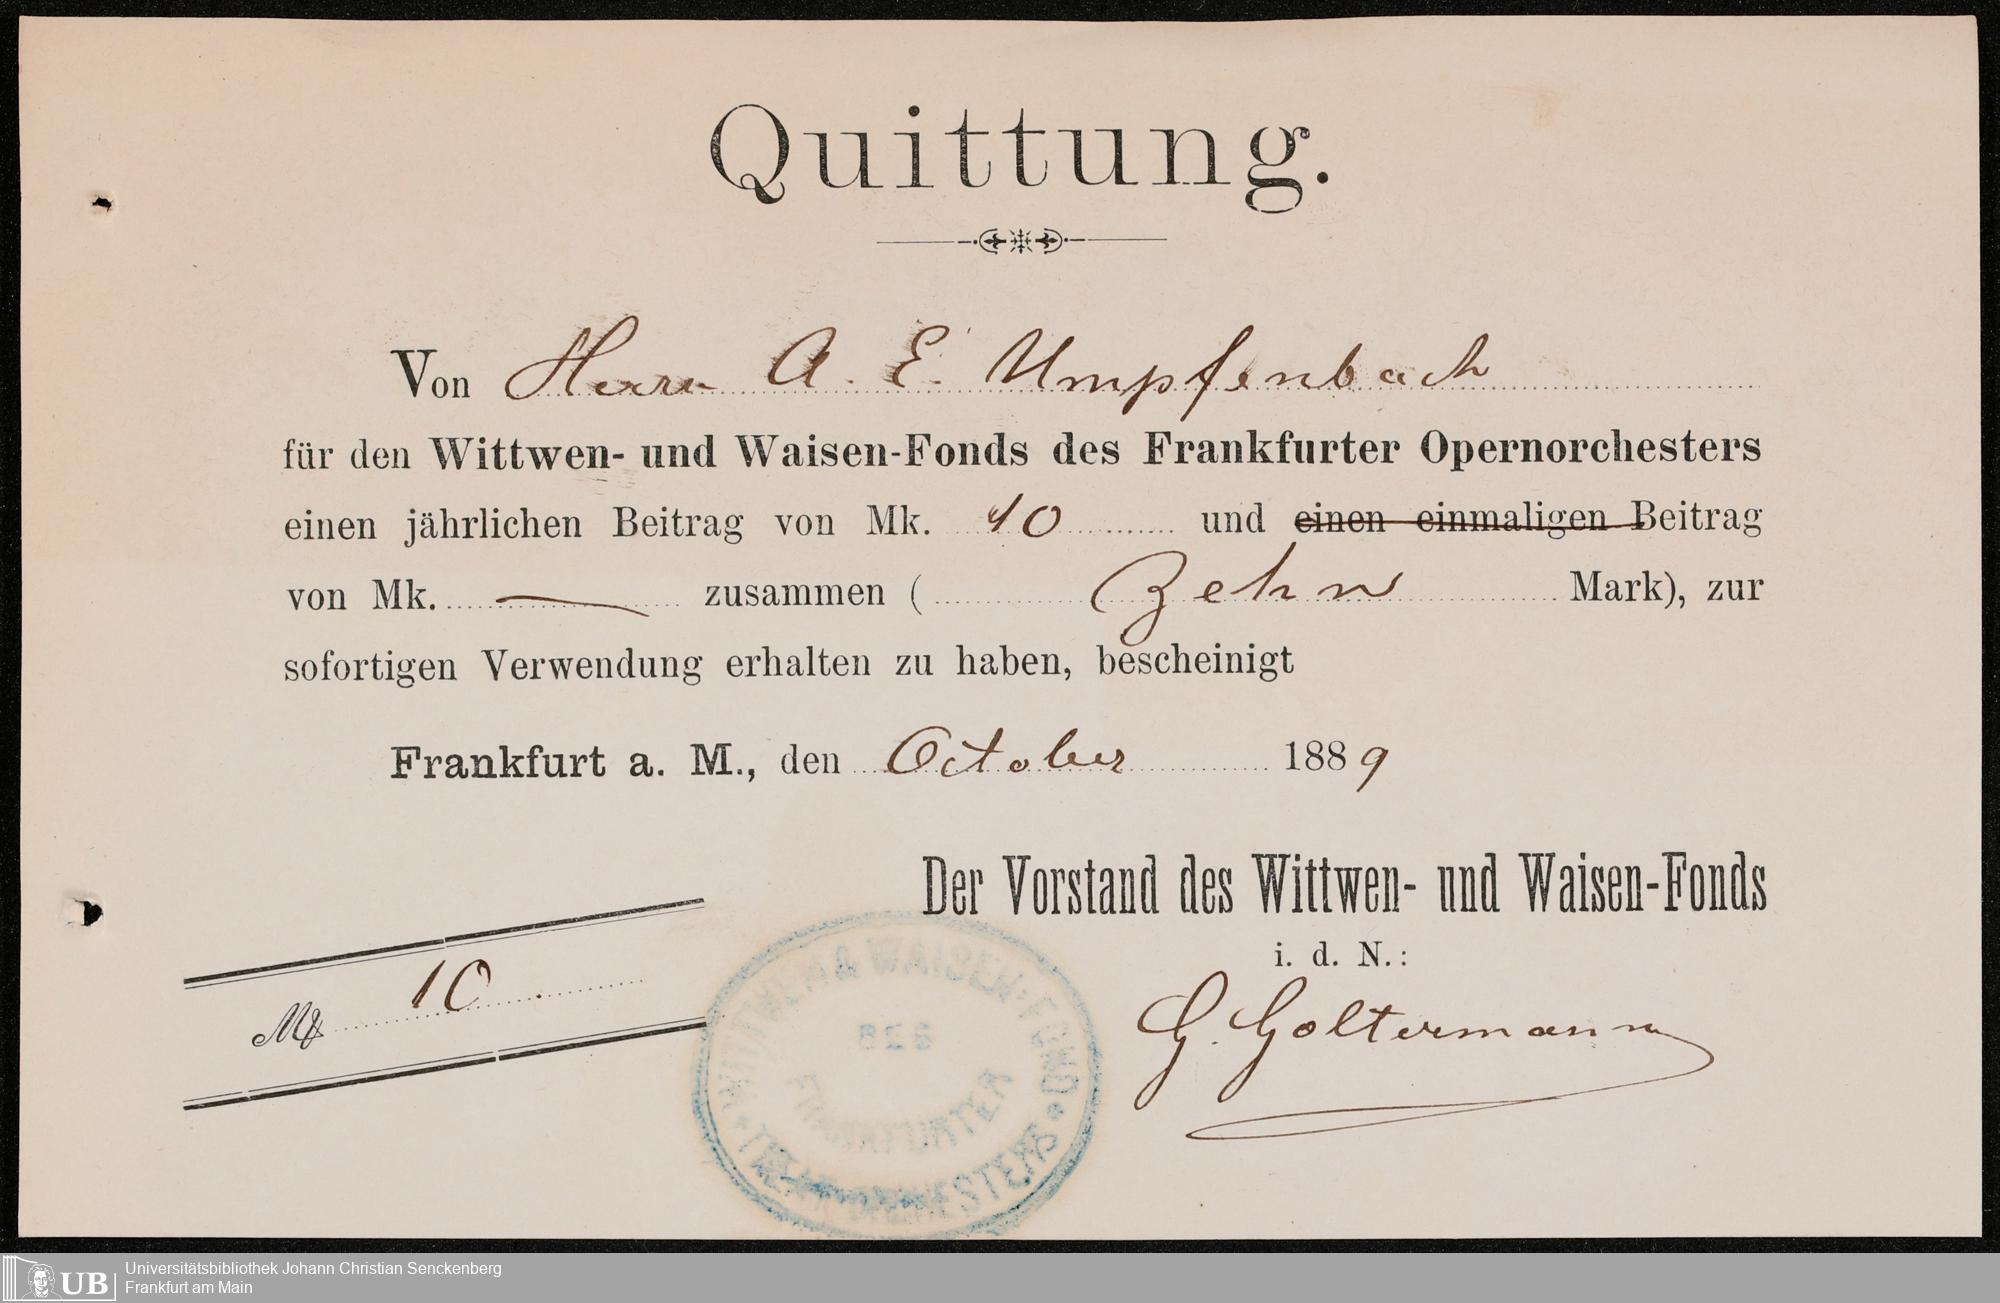 Quittung.
Von Herrn A. E. Umpfenbach
für den Wittwen- und Waisen-Fonds des Frankfurter Opernorchesters
einen jährlichen Beitrag von Mk. 10 und einen einmaligen Beitrag
von Mk. — zusammen ( Zehn Mark), zur
sofortigen Verwendung erhalten zu haben, bescheinigt
Frankfurt a. M., den October 1889
Der Vorstand des Wittwen- und Waisen-Fonds
i. d. N.:
G. Goltermann
Mk 10
WITTWEN & WAISEN-FOND
FRANKFURTER
UB Universitätsbibliothek Johann Christian Senckenberg
Frankfurt am Main